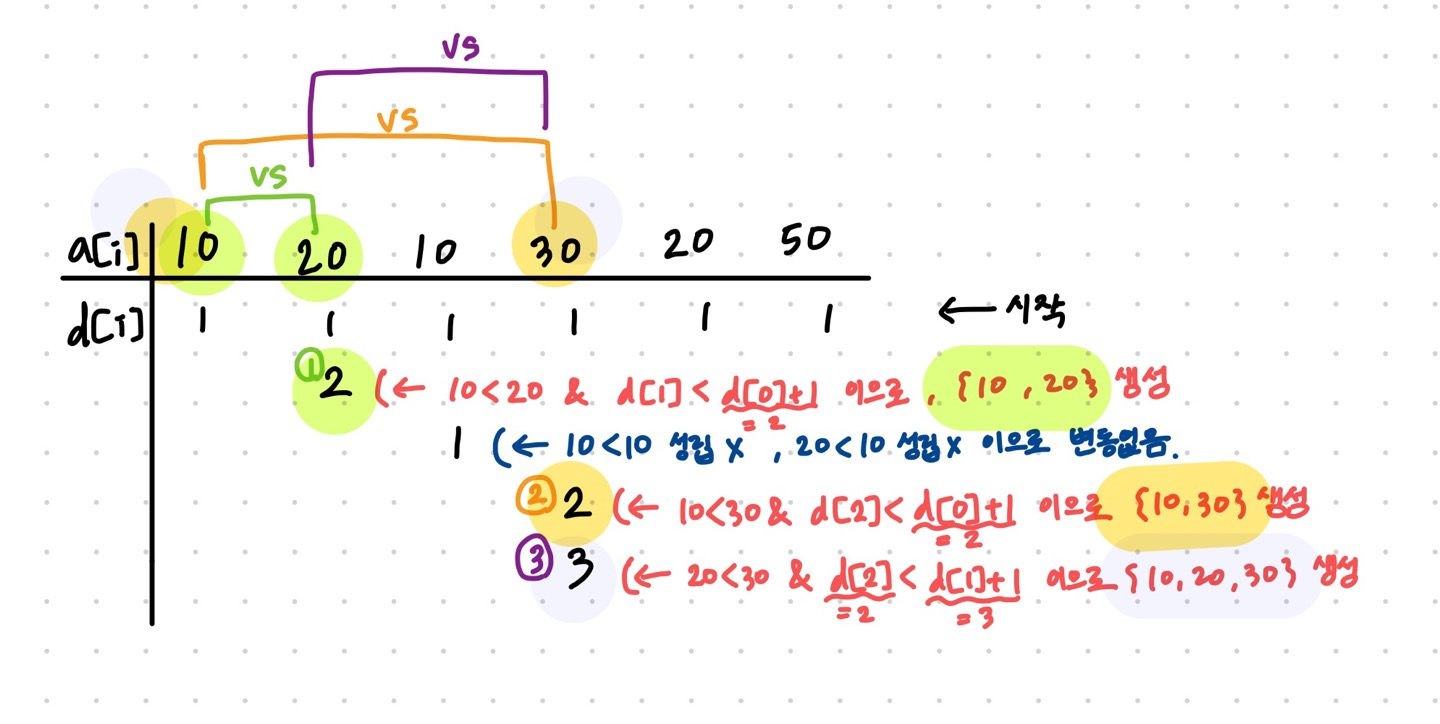 vs
vs
vs
a[i] 10 20 10 30 20 50
d[i] 1 1 1 1 1 1 ← 시작
① 2 (← 10<20 & d[1]<d[0]+1 이으로, {10, 20} 생성
=2
1 (← 10<10 성립x, 20<10 성립x 이으로 변동없음.
② 2 (← 10<30 & d[2]<d[0]+1 이으로 {10,30} 생성
=2
③ 3 (← 20<30 & d[2]<d[1]+1 이으로 {10,20,30} 생성
=2 =3